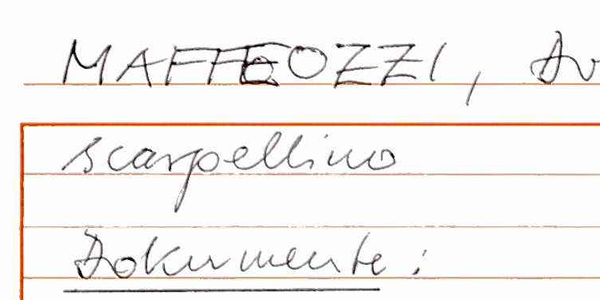 MAFFEOZZI,
scarpellino
Dokumente: